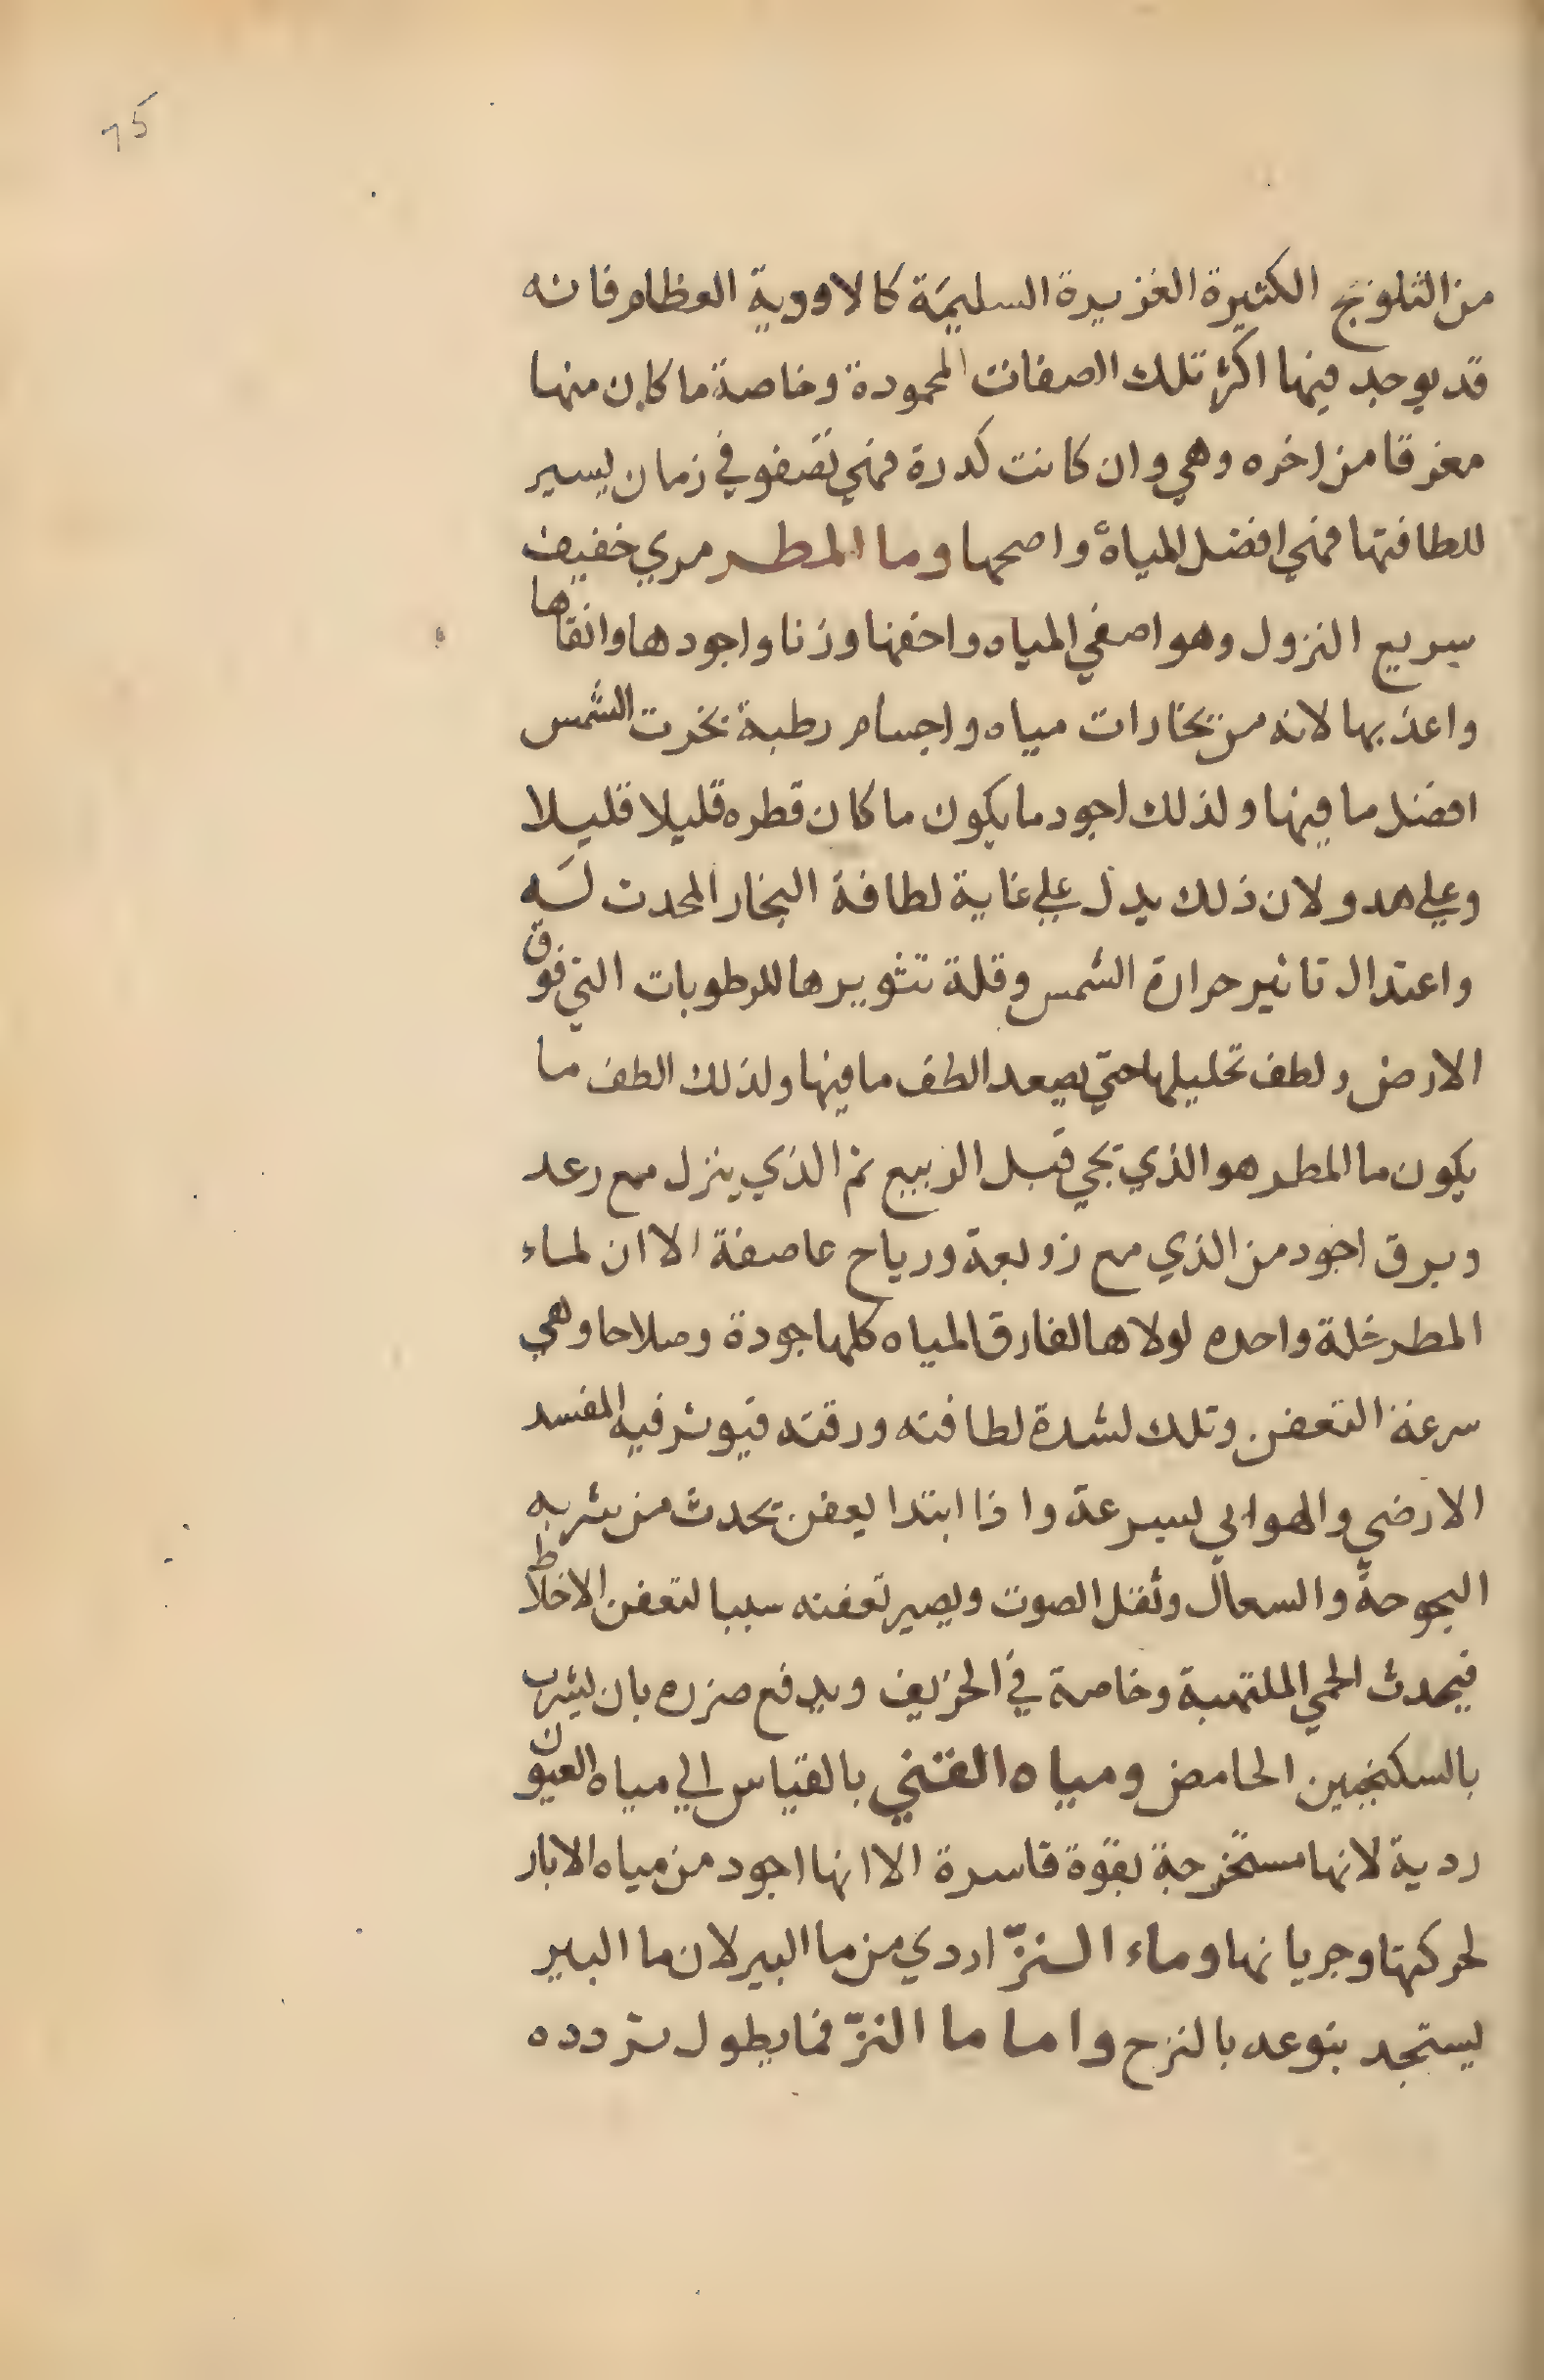 15
من الثلوج الكثيرة الغزيرة السليمَة كالاووية العظام فانه
قد يوجد فيها اكثر تلك الصفات المحمودة وخاصة ما كان منها
مغرقا من اخره وهي وان كانت كدرة فهي تصفو في زمان يسير
للطافتها فهي افضل المياه واصحها وما المطر مري خفيف
سريع النزول وهو اصفي المياه واخفها وزنا واجودها وانقاها
واعذبها لانه من بخارات مياه واجسام رطبة بخرت الشمس
افضل ما فيها ولذلك اجود ما يكون ما كان قطره قليلا قليلا
وعلي هدو لان ذلك يدل علي غاية لطافة البخار المحدث لَه
واعتدال تاثير حرارة الشمس وقلة تثويرها للرطوبات التي فوق
الارض ولطف تحليلها حتي يصعد الطف ما فيها ولذلك الطف ما
يكون ما المطر هو الذي يجي قبل الربيع ثم الذي ينزل مع رعد
وبرق اجود من الذي مع زوبعة ورياح عاصفة الا ان لماء
المطر خلة واحده لولاها لفارق المياه كلها جودة وصلاحا وهي
سرعة التعفن وتلك لشدة لطافته ورقته فيوثر فيه المفسد
الارضي والهوايي بسرعة واذا ابتدا يعفن يحدث من شربه
البحوحة والسعال وثقل الصوت ويصير تعفنه سببا لتعفن الاخلاط
فيحدث الحمي الملتهبة وخاصة في الخريف ويدفع ضرره بان يشرب
بالسكنجبين الحامض ومياه القني بالقياس الي مياه العيون
ردية لانها مستخرجة بقوة قاسرة الا انها اجود من مياه الابار
لحركتها وجريانها وماء النزّ اردي من ما البير لان ما البير
يستجد بنوعه بالنزح واما ما النزّ فما يطول تردده